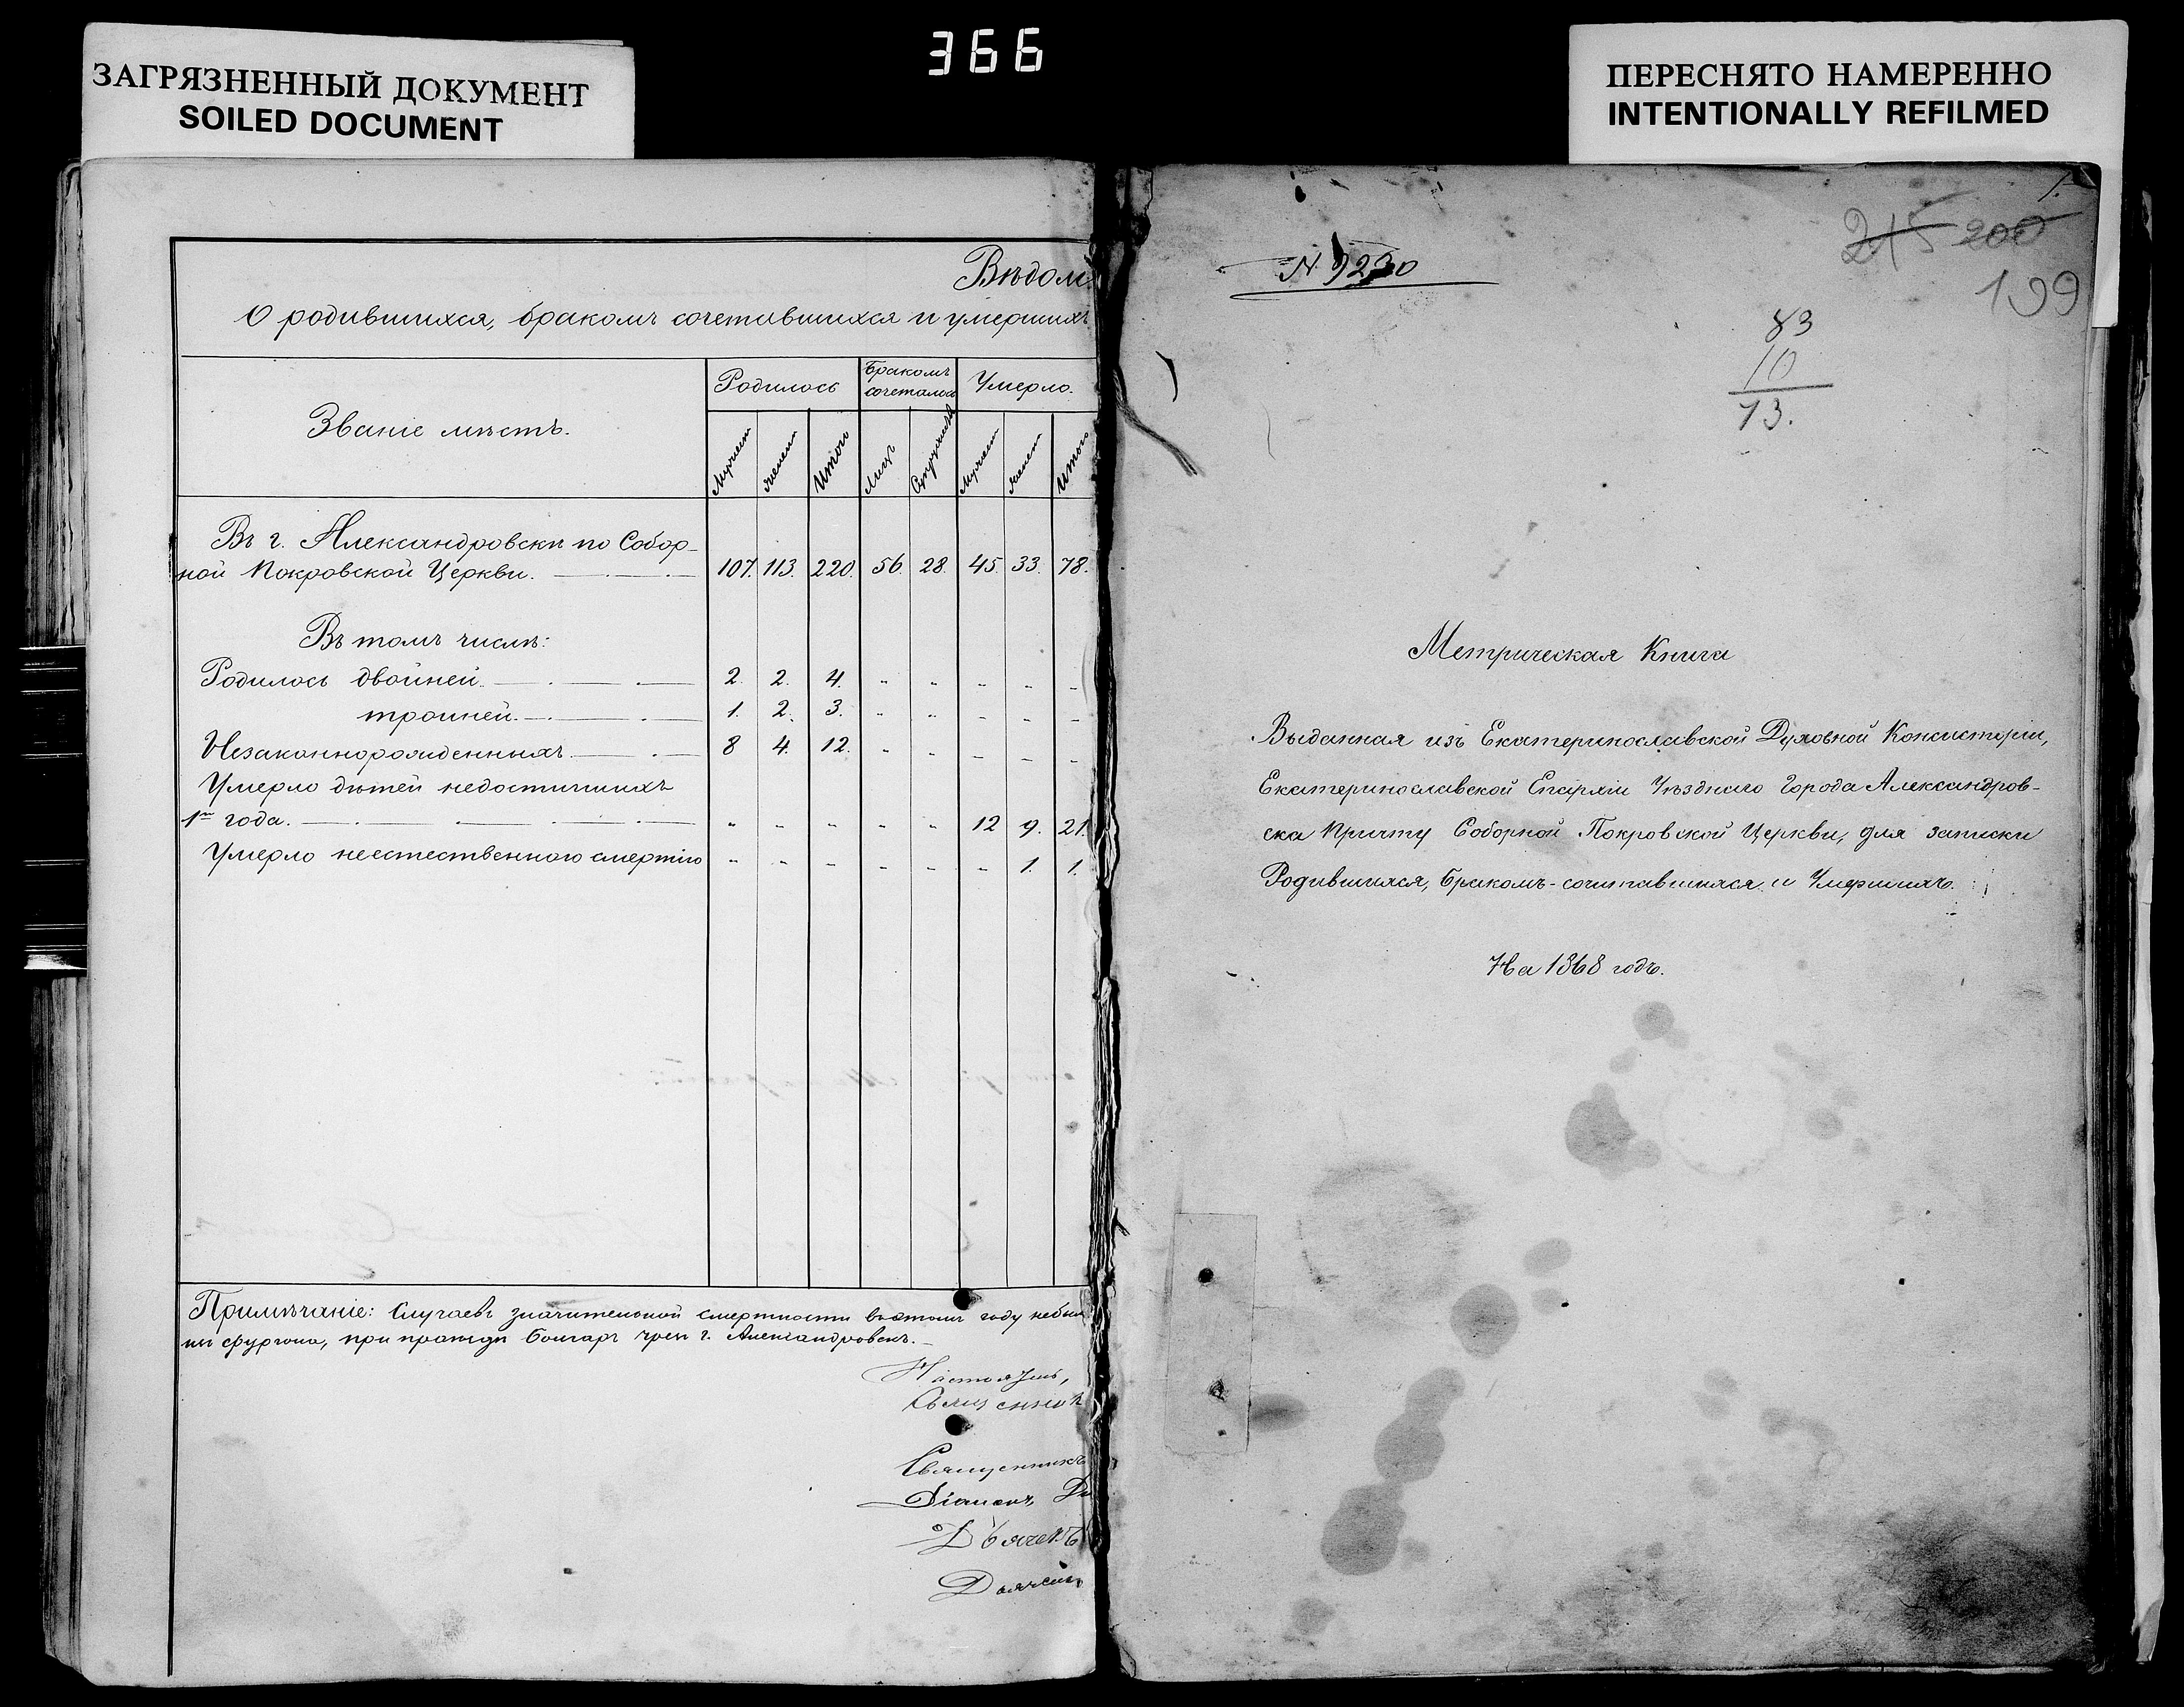 366
ЗАГРЯЗНЕННЫЙ ДОКУМЕНТ
SOILED DOCUMENT
ПЕРЕСНЯТО НАМЕРЕННО
INTENTIONALLY REFILMED
Вѣдом
О родившихся, бракомъ сочетавшихся и умершихъ
Званіе мѣстъ.
Родилось
Бракомъ сочеталось
Умерло.
Мужеск
Женск
Итого
Лицъ
Супружествъ
Мужеск
Женск
Итого
Въ г. Александровскѣ по Собор-
ной Покровской Церкви. 107. 113. 220. 56. 28. 45. 33. 78.
Въ томъ числѣ:
Родилось двойней. 2. 2. 4. „ „ „ „ „
тройней. 1. 2. 3. „ „ „ „ „
Незаконнорожденныхъ 8 4. 12. „ „ „ „ „
Умерло дѣтей недостигшихъ
1го года. „ „ „ „ „ 12 9. 21.
Умерло неестественною смертію „ „ „ „ „ „ 1. 1.
Примѣчаніе: Случаевъ значительной смертности въ этомъ году небыл
при г. Александровскъ.
Настоятель,
Священник
Священникъ
Діаконъ
Дьячекъ
Дьячекъ
1.
215 200
199
N. 9230
83
10
73.
Метрическая Книга
Выданная изъ Екатеринославской Духовной Консисторіи,
Екатеринославской Епархіи Уѣзднаго Города Александров-
ска Причту Соборной Покровской Церкви, для записки
Родившихся, Бракомъ-сочитавшихся и Умершихъ.
На 1868 годъ.